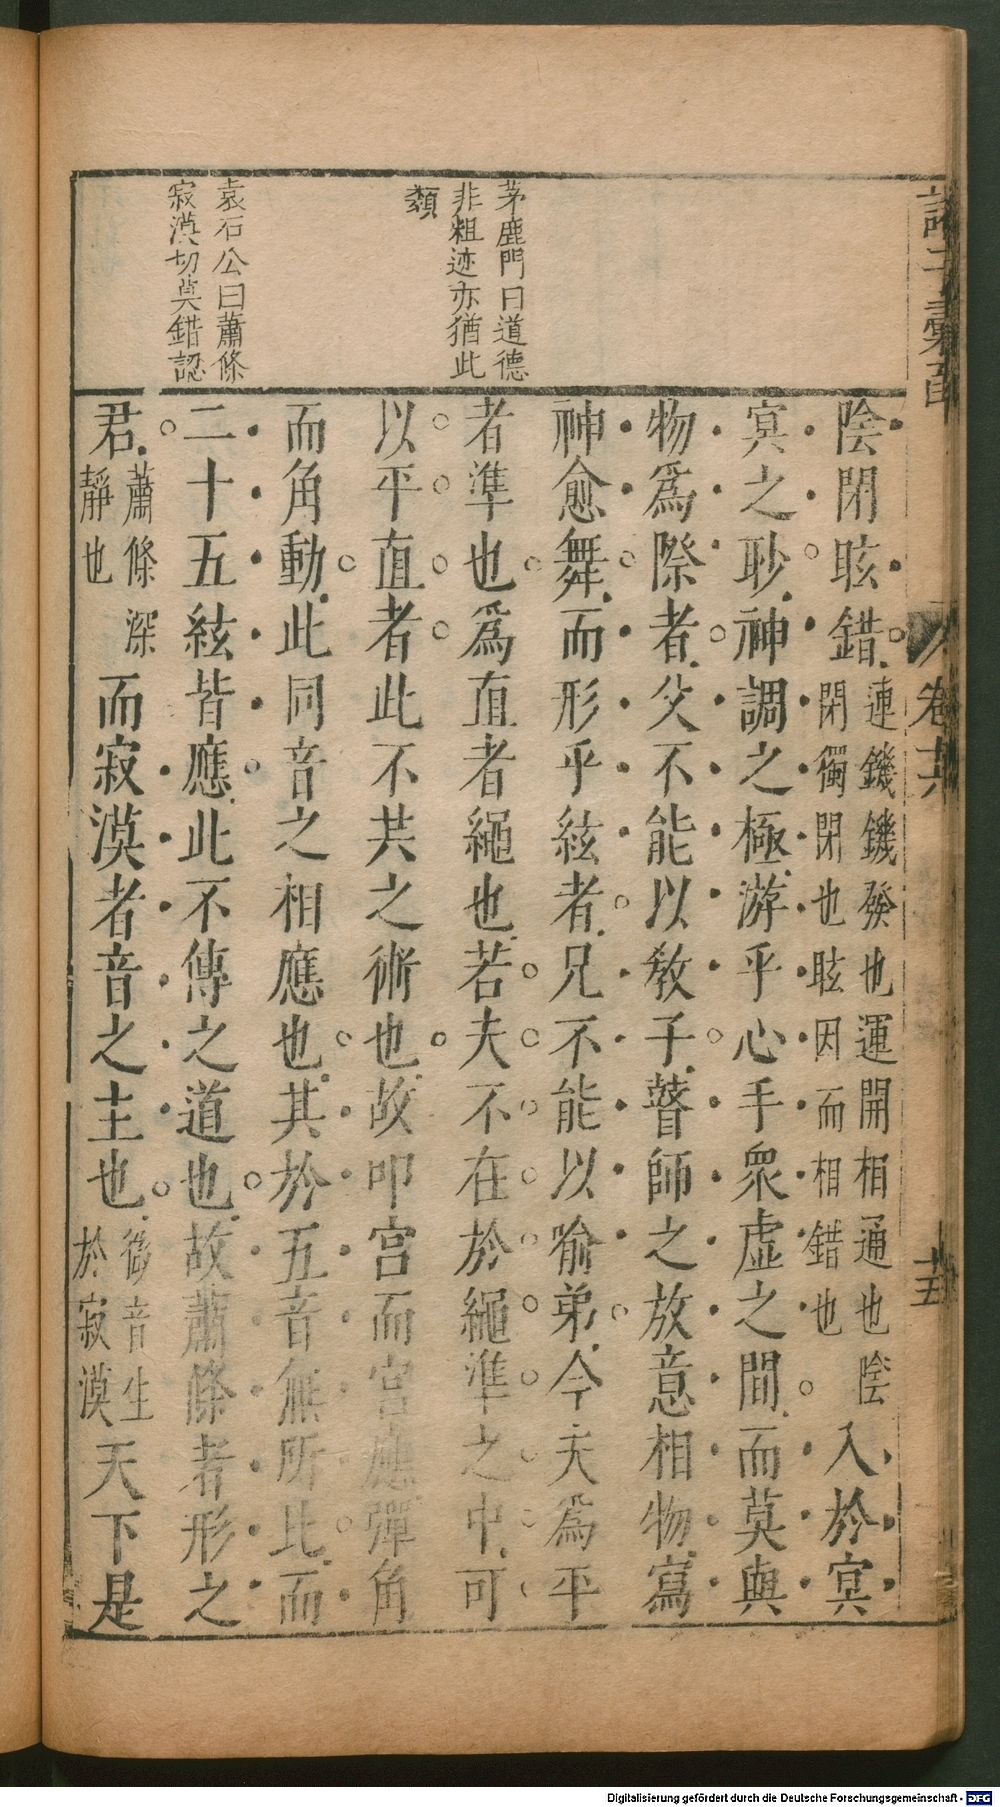 茅鹿門曰道德
非粗迹亦猶此
類
袁石公曰蕭條
寂漠切莫錯認
陰閉眩錯連鐖鐖發也運開相通也陰閉獨閉也眩因而相錯也入於㝠
㝠之眇神調之極游乎心手眾虛之間而莫與
物爲際者父不能以教子瞽師之放意相物寫
神愈舞而形乎絃者兄不能以喻弟今夫爲平
者準也爲直者繩也若夫不在於繩準之中可
以平直者此不共之術也故叩宮而宮應彈角
而角動此同音之相應也其於五音無所比而
二十五絃皆應此不傳之道也故蕭條者形之
君蕭條深靜也而寂漠者音之主也微音生於寂漠天下是
諸子彙函
卷十六
十五
Digitalisierung gefördert durch die Deutsche Forschungsgemeinschaft - DFG